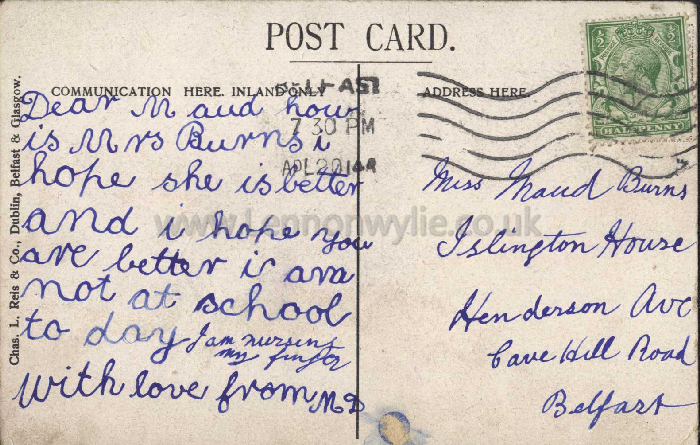 POST CARD.
COMMUNICATION HERE. INLAND ONLY
ADDRESS HERE.
BELFAST
7 30 PM
APL 22 14
HALFPENNY
Chas. L. Reis & Co., Dublin, Belfast & Glasgow.
Dear Maud how
is Mrs Burns i
hope she is better
and i hope you
are better i
not at school
to day I am nursing
my finger
With love from MD
Miss Maud Burns
Islington House
Henderson Ave
Cave Hill Road
Belfast
www.Lennonwylie.co.uk